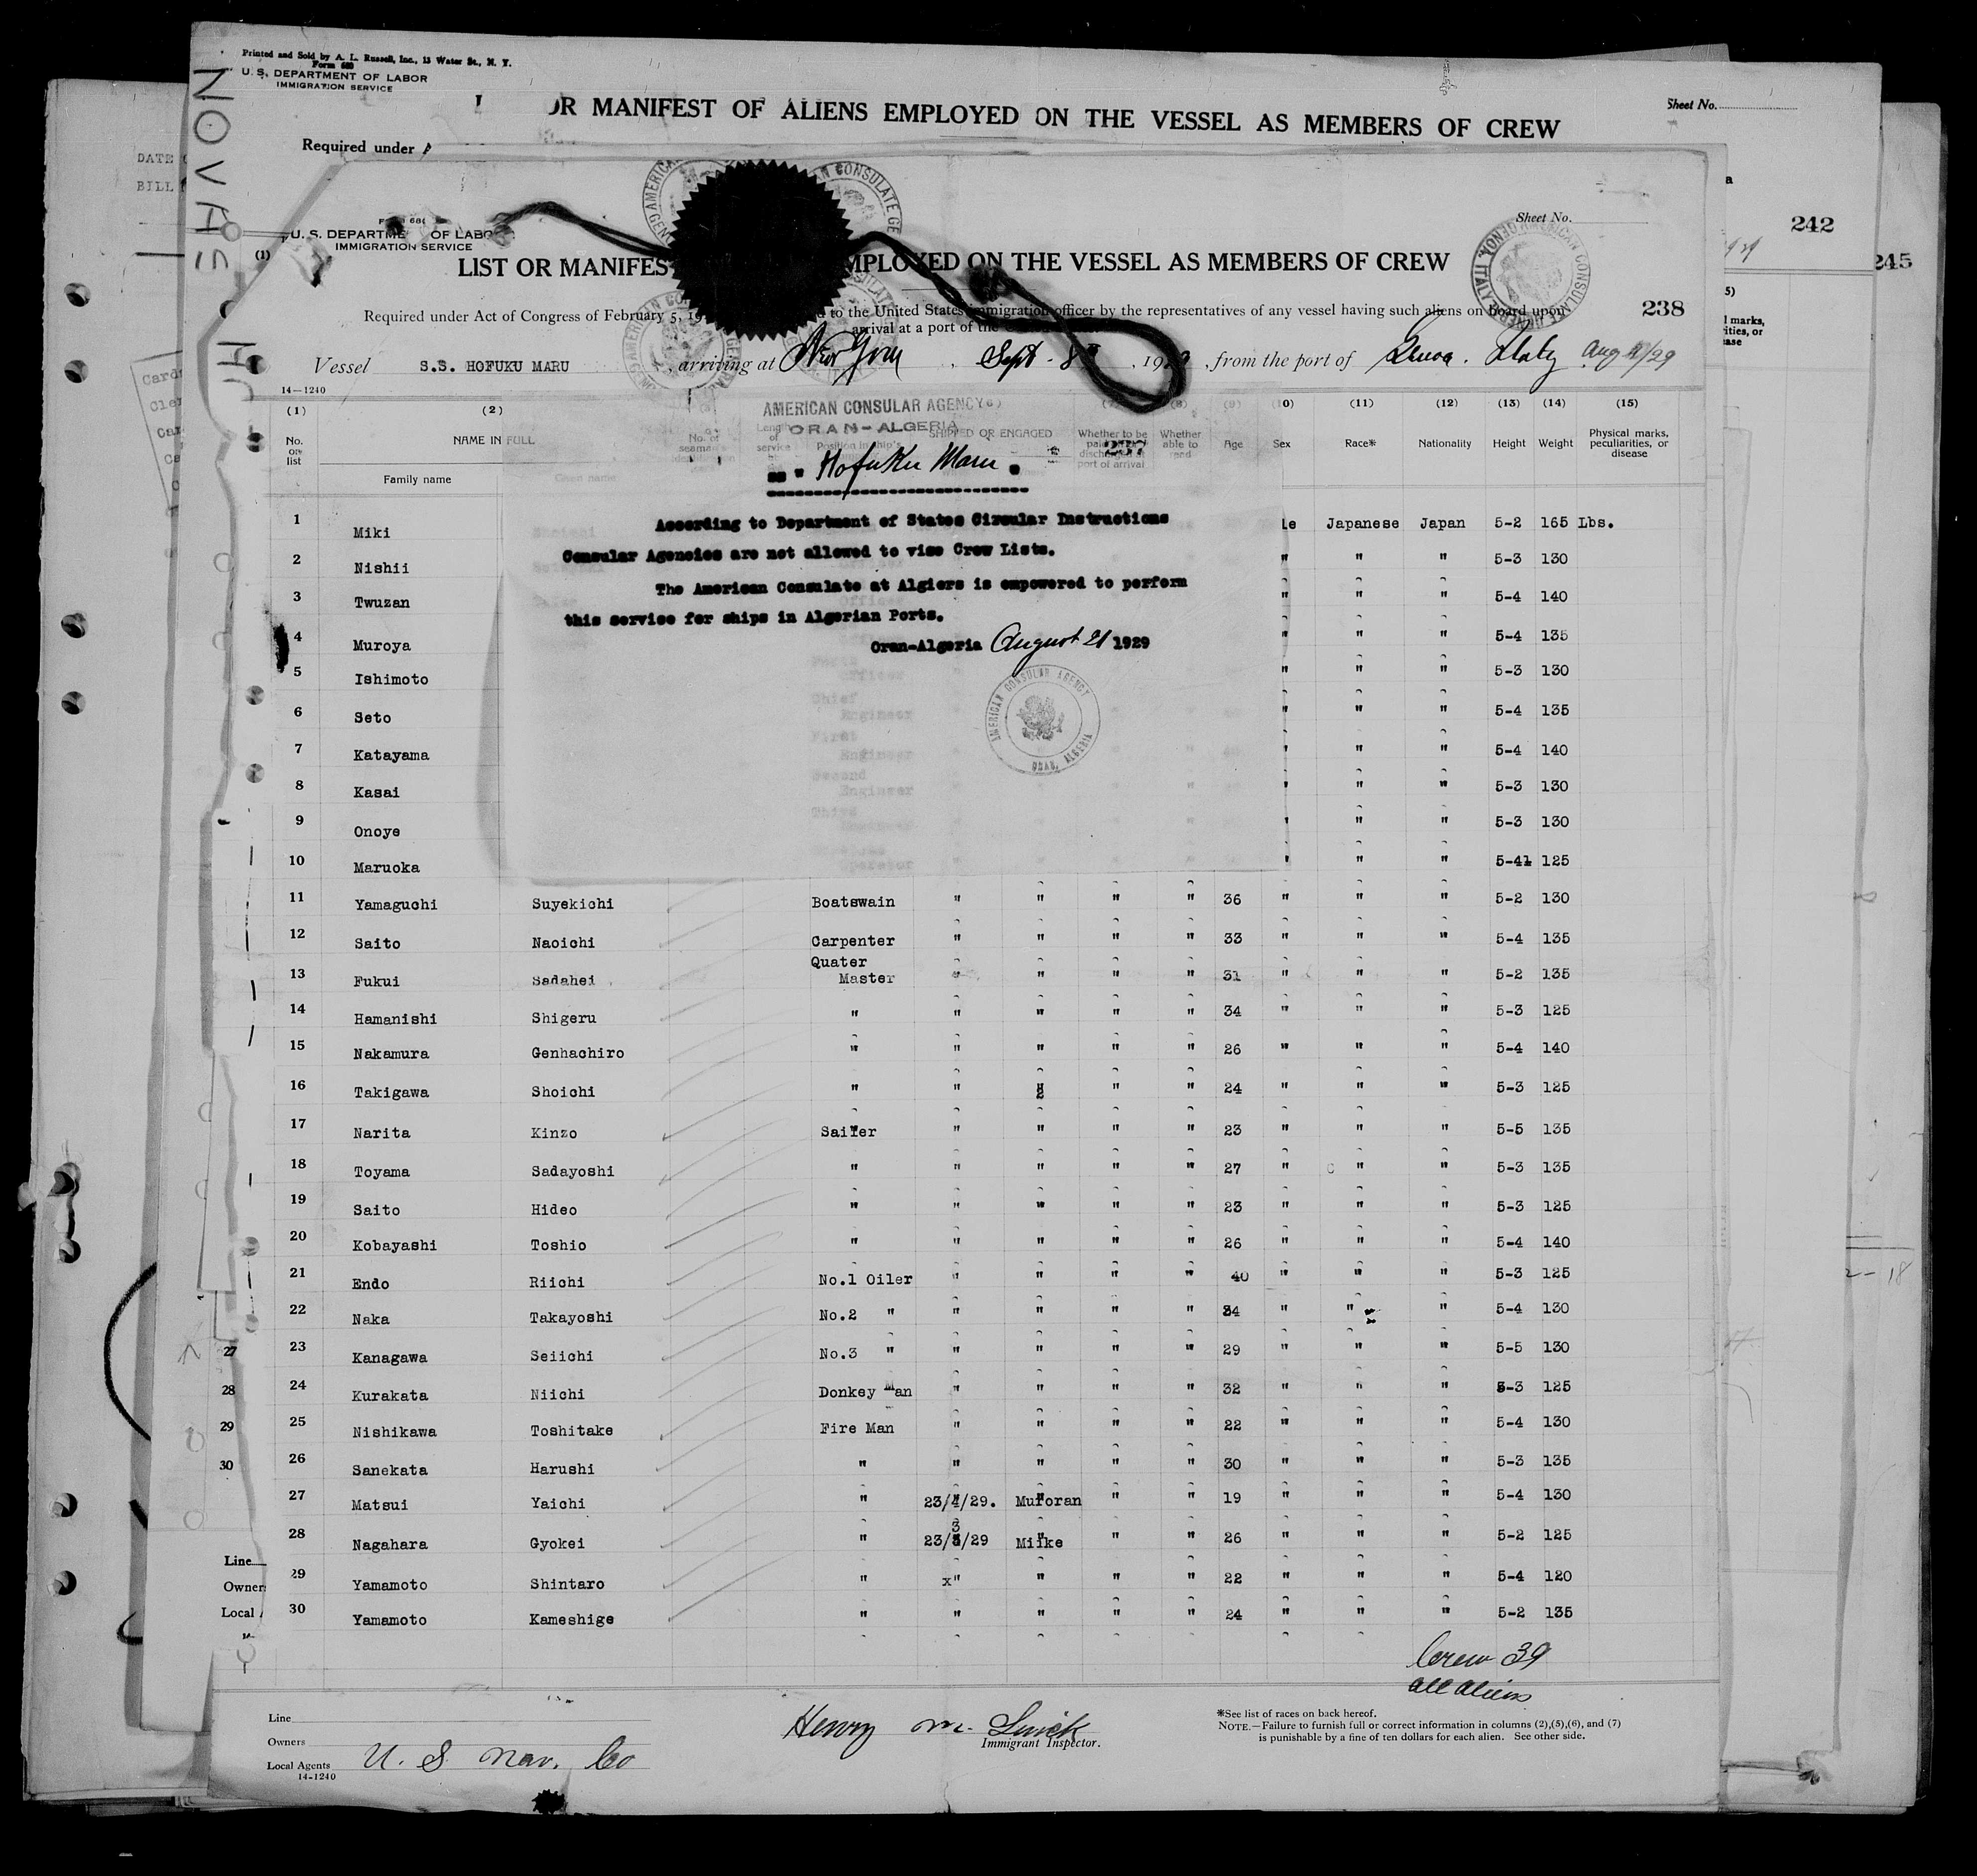 Printed and Sold by A. L. Russell, Inc., 13 Water St., N. Y.
Form 680
U. S. DEPARTMENT OF LABOR
IMMIGRATION SERVICE
OR MANIFEST OF ALIENS EMPLOYED ON THE VESSEL AS MEMBERS OF CREW
Sheet No.
Required under
DATE
BILL
242
245
U. S. DEPARTME OF LABO
IMMIGRATION SERVICE
Sheet No.
(1)
LIST OR MANIFES MPLOYED ON THE VESSEL AS MEMBERS OF CREW
Required under Act of Congress of February 5, 19 to the United States immigration officer by the representatives of any vessel having such aliens on board upon
238
arrival at a port of the
Vessel S.S. HOFUKU MARU , arriving at New York , Sept - 8 , 1929 , from the port of Genoa . Italy Aug /29
14—1240
(1) (2) (9) (10) (11) (12) (13) (14) (15)
No. on list NAME IN FULL Age Sex Race* Nationality Height Weight Physical marks, peculiarities, or disease
Family name
AMERICAN CONSULAR AGENCY
ORAN-ALGERIA
237
ss " Hofuku Maru "
According to Department of States Circular Instructions
Consular Agencies are not allowed to vise Crew Lists.
The American Consulate at Algiers is empowered to perform
this service for ships in Algerian Ports.
Oran-Algeria August 21 1929
AMERICAN CONSULAR AGENCY
ORAN, ALGERIA
1 Miki le Japanese Japan 5-2 165 Lbs.
2 Nishii " " " 5-3 130
3 Twuzan " " " 5-4 140
4 Muroya " " " 5-4 135
5 Ishimoto " " " 5-3 130
6 Seto " " " 5-4 135
7 Katayama " " " 5-4 140
8 Kasai " " " 5-3 130
9 Onoye " " " 5-3 130
10 Maruoka " " " 5-4 125
11 Yamaguchi Suyekichi Boatswain " " " " 36 " " " 5-2 130
12 Saito Naoichi Carpenter " " " " 33 " " " 5-4 135
13 Fukui Sadahei Quater Master " " " " 31 " " " 5-2 135
14 Hamanishi Shigeru " " " " " 34 " " " 5-3 125
15 Nakamura Genhachiro " " " " " 26 " " " 5-4 140
16 Takigawa Shoichi " " " " " 24 " " " 5-3 125
17 Narita Kinzo Sailer " " " " 23 " " " 5-5 135
18 Toyama Sadayoshi " " " " " 27 " " " 5-3 135
19 Saito Hideo " " " " " 23 " " " 5-3 125
20 Kobayashi Toshio " " " " " 26 " " " 5-4 140
21 Endo Riichi No.1 Oiler " " " " 40 " " " 5-3 125
22 Naka Takayoshi No.2 " " " " " 34 " " " 5-4 130
23 Kanagawa Seiichi No.3 " " " " " 29 " " " 5-5 130
24 Kurakata Niichi Donkey Man " " " " 32 " " " 5-3 125
25 Nishikawa Toshitake Fire Man " " " " 22 " " " 5-4 130
26 Sanekata Harushi " " " " " 30 " " " 5-3 135
27 Matsui Yaichi " 23/4/29. Muroran " " 19 " " " 5-4 130
28 Nagahara Gyokei " 23/3/29 Miike " " 26 " " " 5-2 125
29 Yamamoto Shintaro " x" " " " 22 " " " 5-4 120
30 Yamamoto Kameshige " " " " " 24 " " " 5-2 135
27
28
29
30
Line
Owners
Local
Crew 39
all aliens
Line
Owners
Local Agents U. S Nav. Co
14-1240
Henry M.
Immigrant Inspector.
*See list of races on back hereof.
NOTE.—Failure to furnish full or correct information in columns (2),(5),(6), and (7)
is punishable by a fine of ten dollars for each alien. See other side.